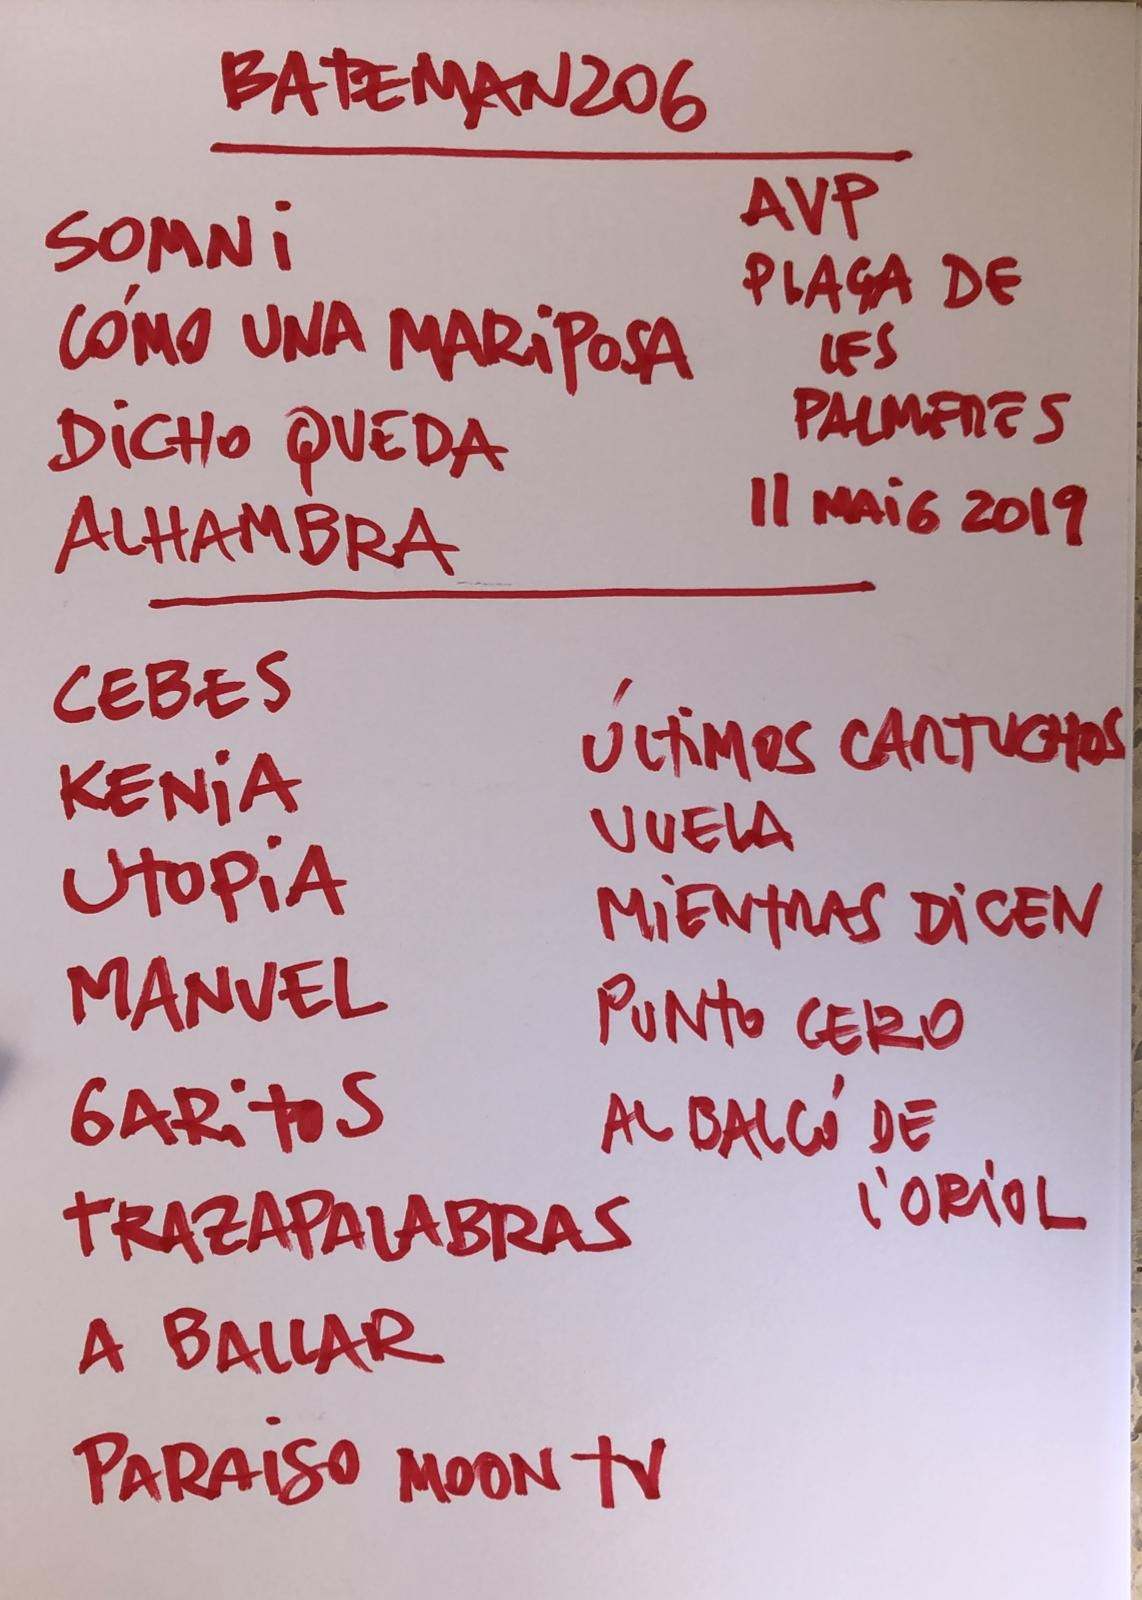 BATEMAN206
SOMNi
CÓMO UNA MARiPOSA
DiCHO QUEDA
ALHAMBRA
AVP
PLAÇA DE
LES
PALMERES
11 MAiG 2019
CEBES
KENiA
UTOPiA
MANUEL
GARitOS
TRAZAPALABRAS
A BALLAR
PARAiSO MOON TV
ÚLTiMOS CARTUCHOS
VUELA
MiENTRAS DiCEN
PUNTO CERO
AL BALCÓ DE
L'ORiOL